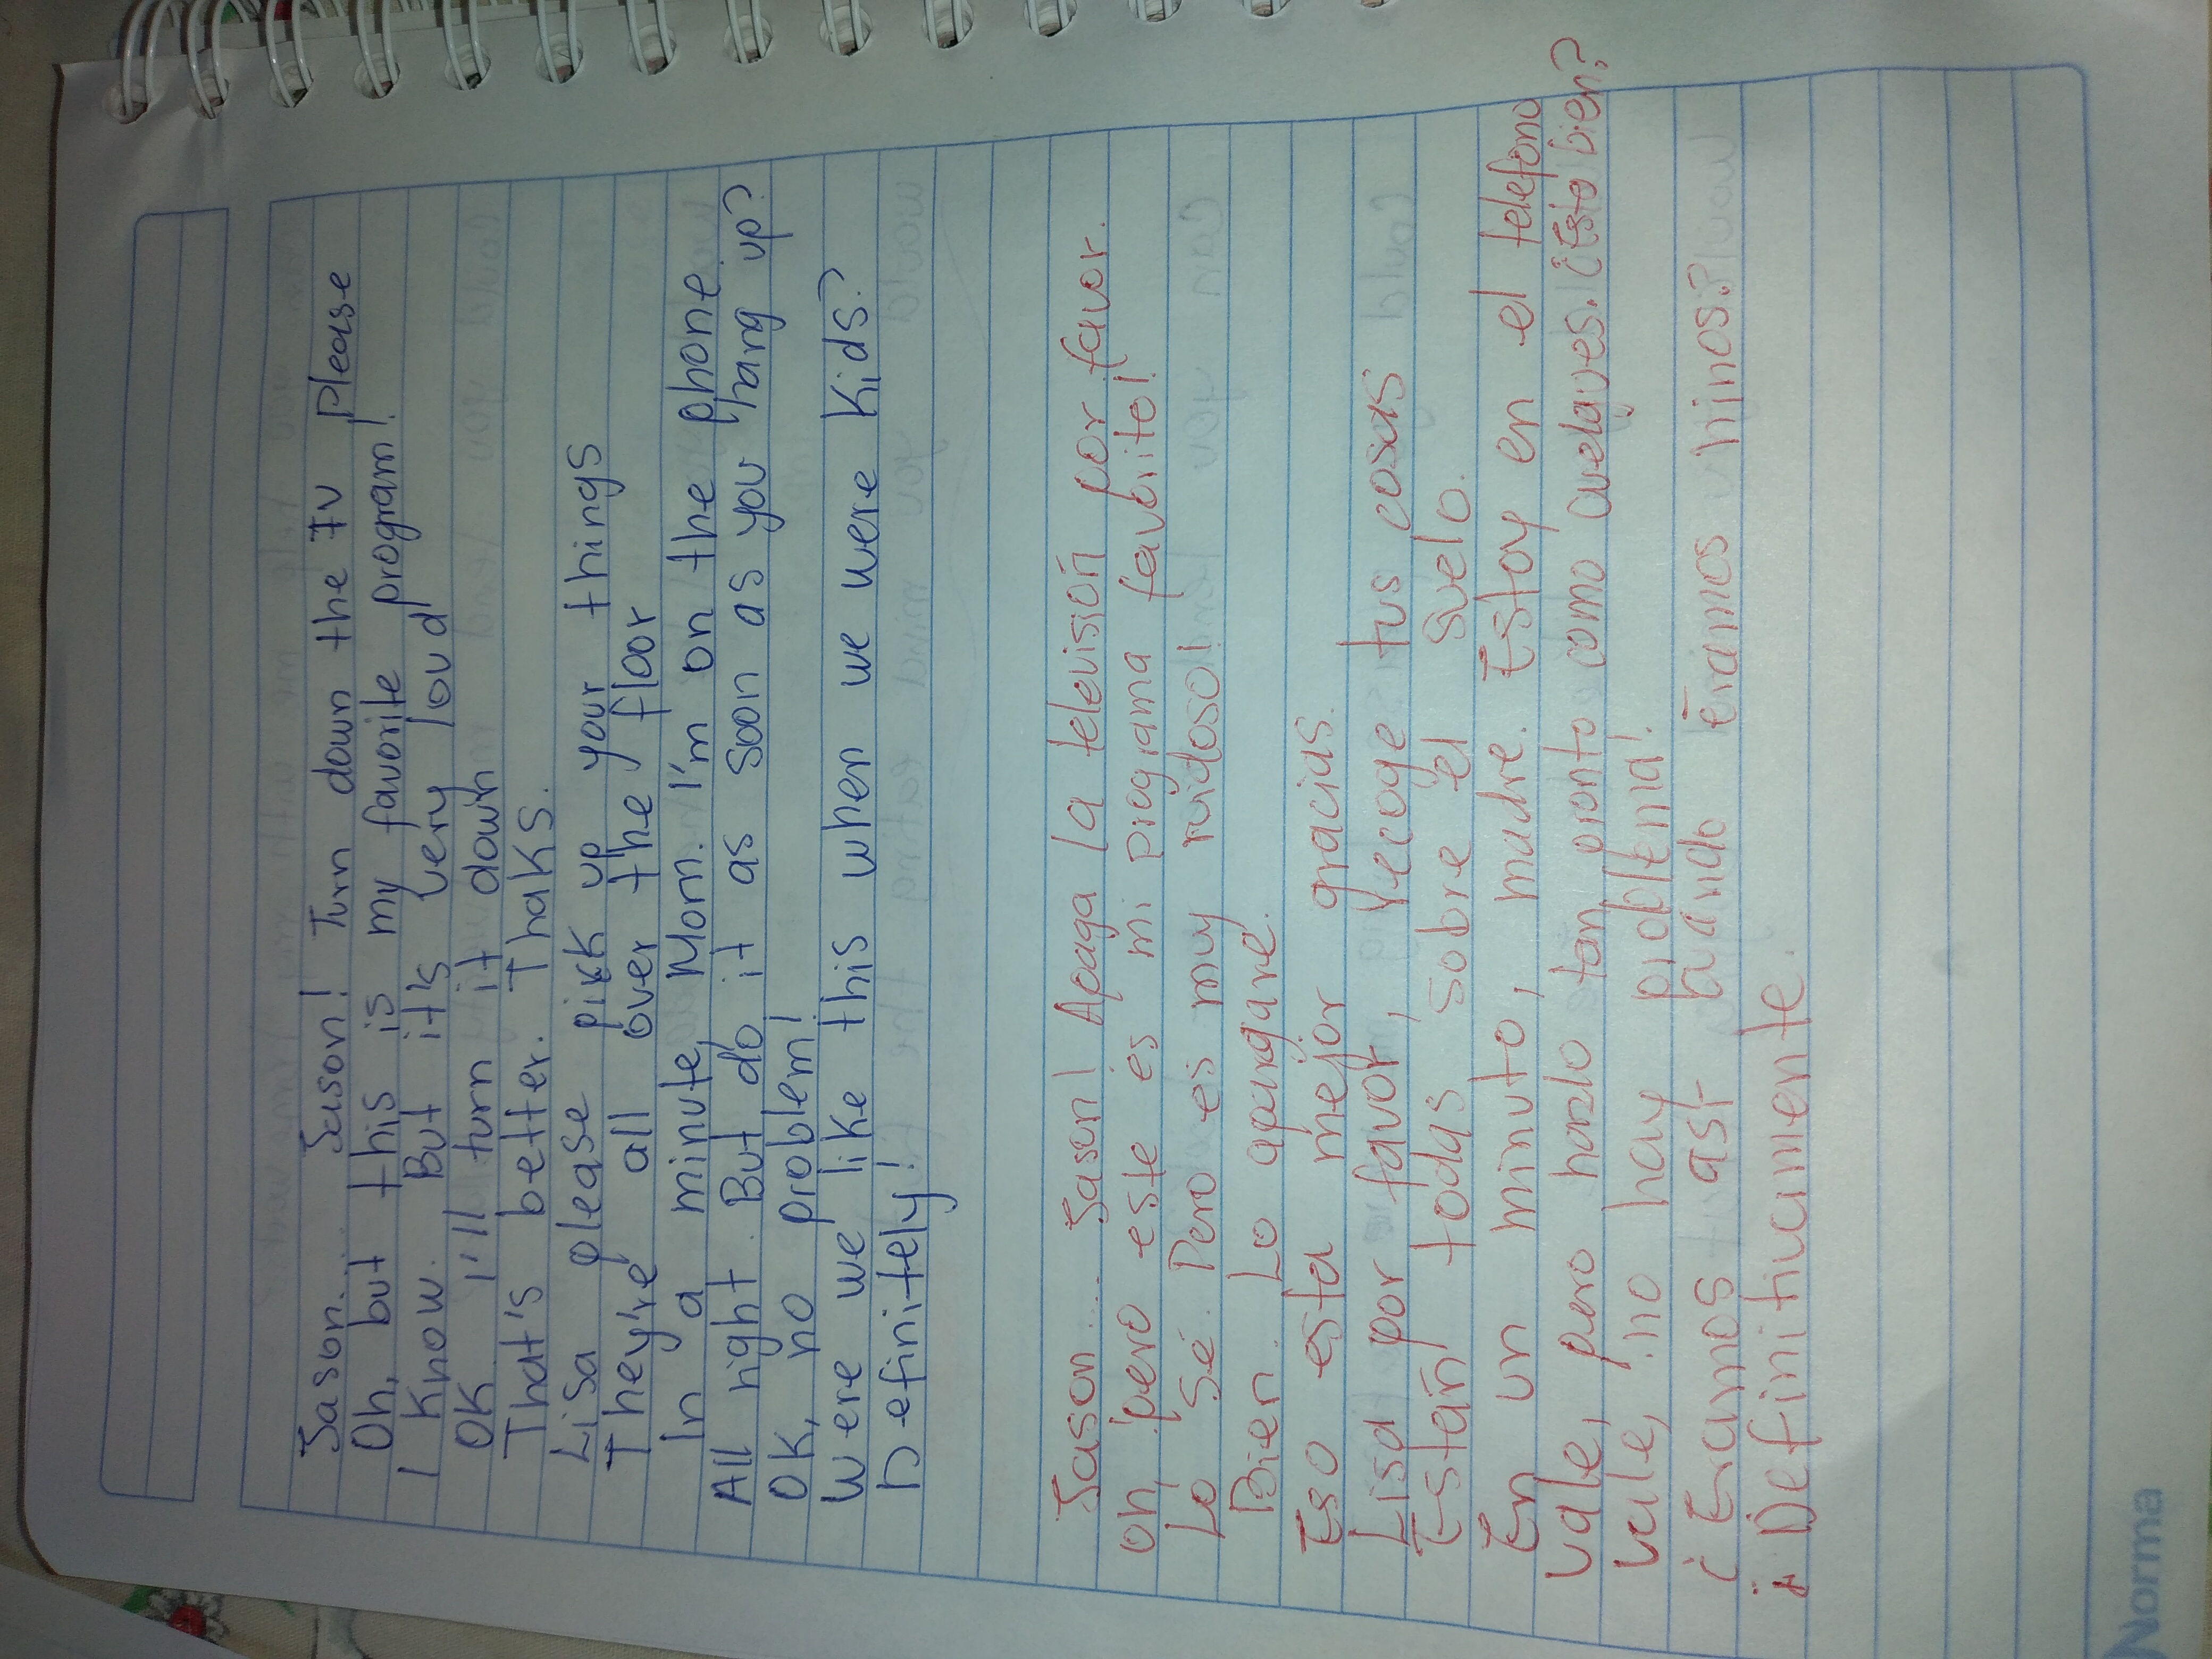 Jason... Jason! Turn down the TV Please
Oh, but this is my favorite program!
I Know. But it's very loud
OK. I'll turn it down
That's better. Thaks.
Lisa please pick up your things
They're all over the floor
In a minute, Mom. I'm on the phone.
All right. But do it as soon as you hang up?
OK, no problem!
Were we like this when we were Kids?
Definitely!
Jason... Jason! Apaga la televisión por favor.
Oh, pero este es mi programa favorito!
Lo sé. Pero es muy ruidoso!
Bien. Lo apargare.
Eso esta mejor gracias.
Lisa por favor, recoge tus cosas
Están todas sobre el suelo.
En un minuto, madre. Estoy en el telefono
vale, pero hazlo tan pronto como cuelgues. ¿Esta bien?
vale, no hay problema!
¿Eramos así cuando éramos niños?
¡Definitivamente.
Norma